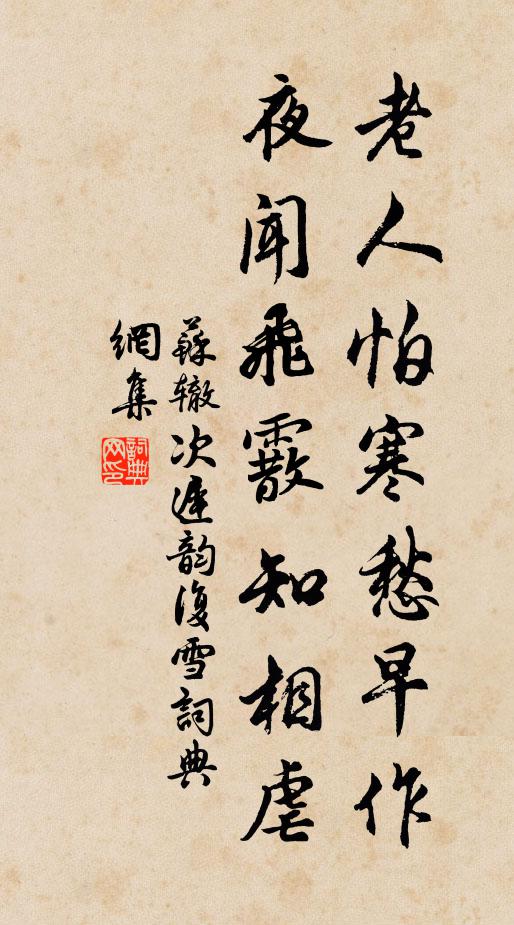 老人怕寒愁早作
夜闻飛霰知相虐
蘇辙次遲韵復雪詞典
網集
詞典网印